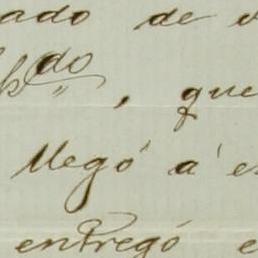 ado de
do
, que
llegó á
entregó